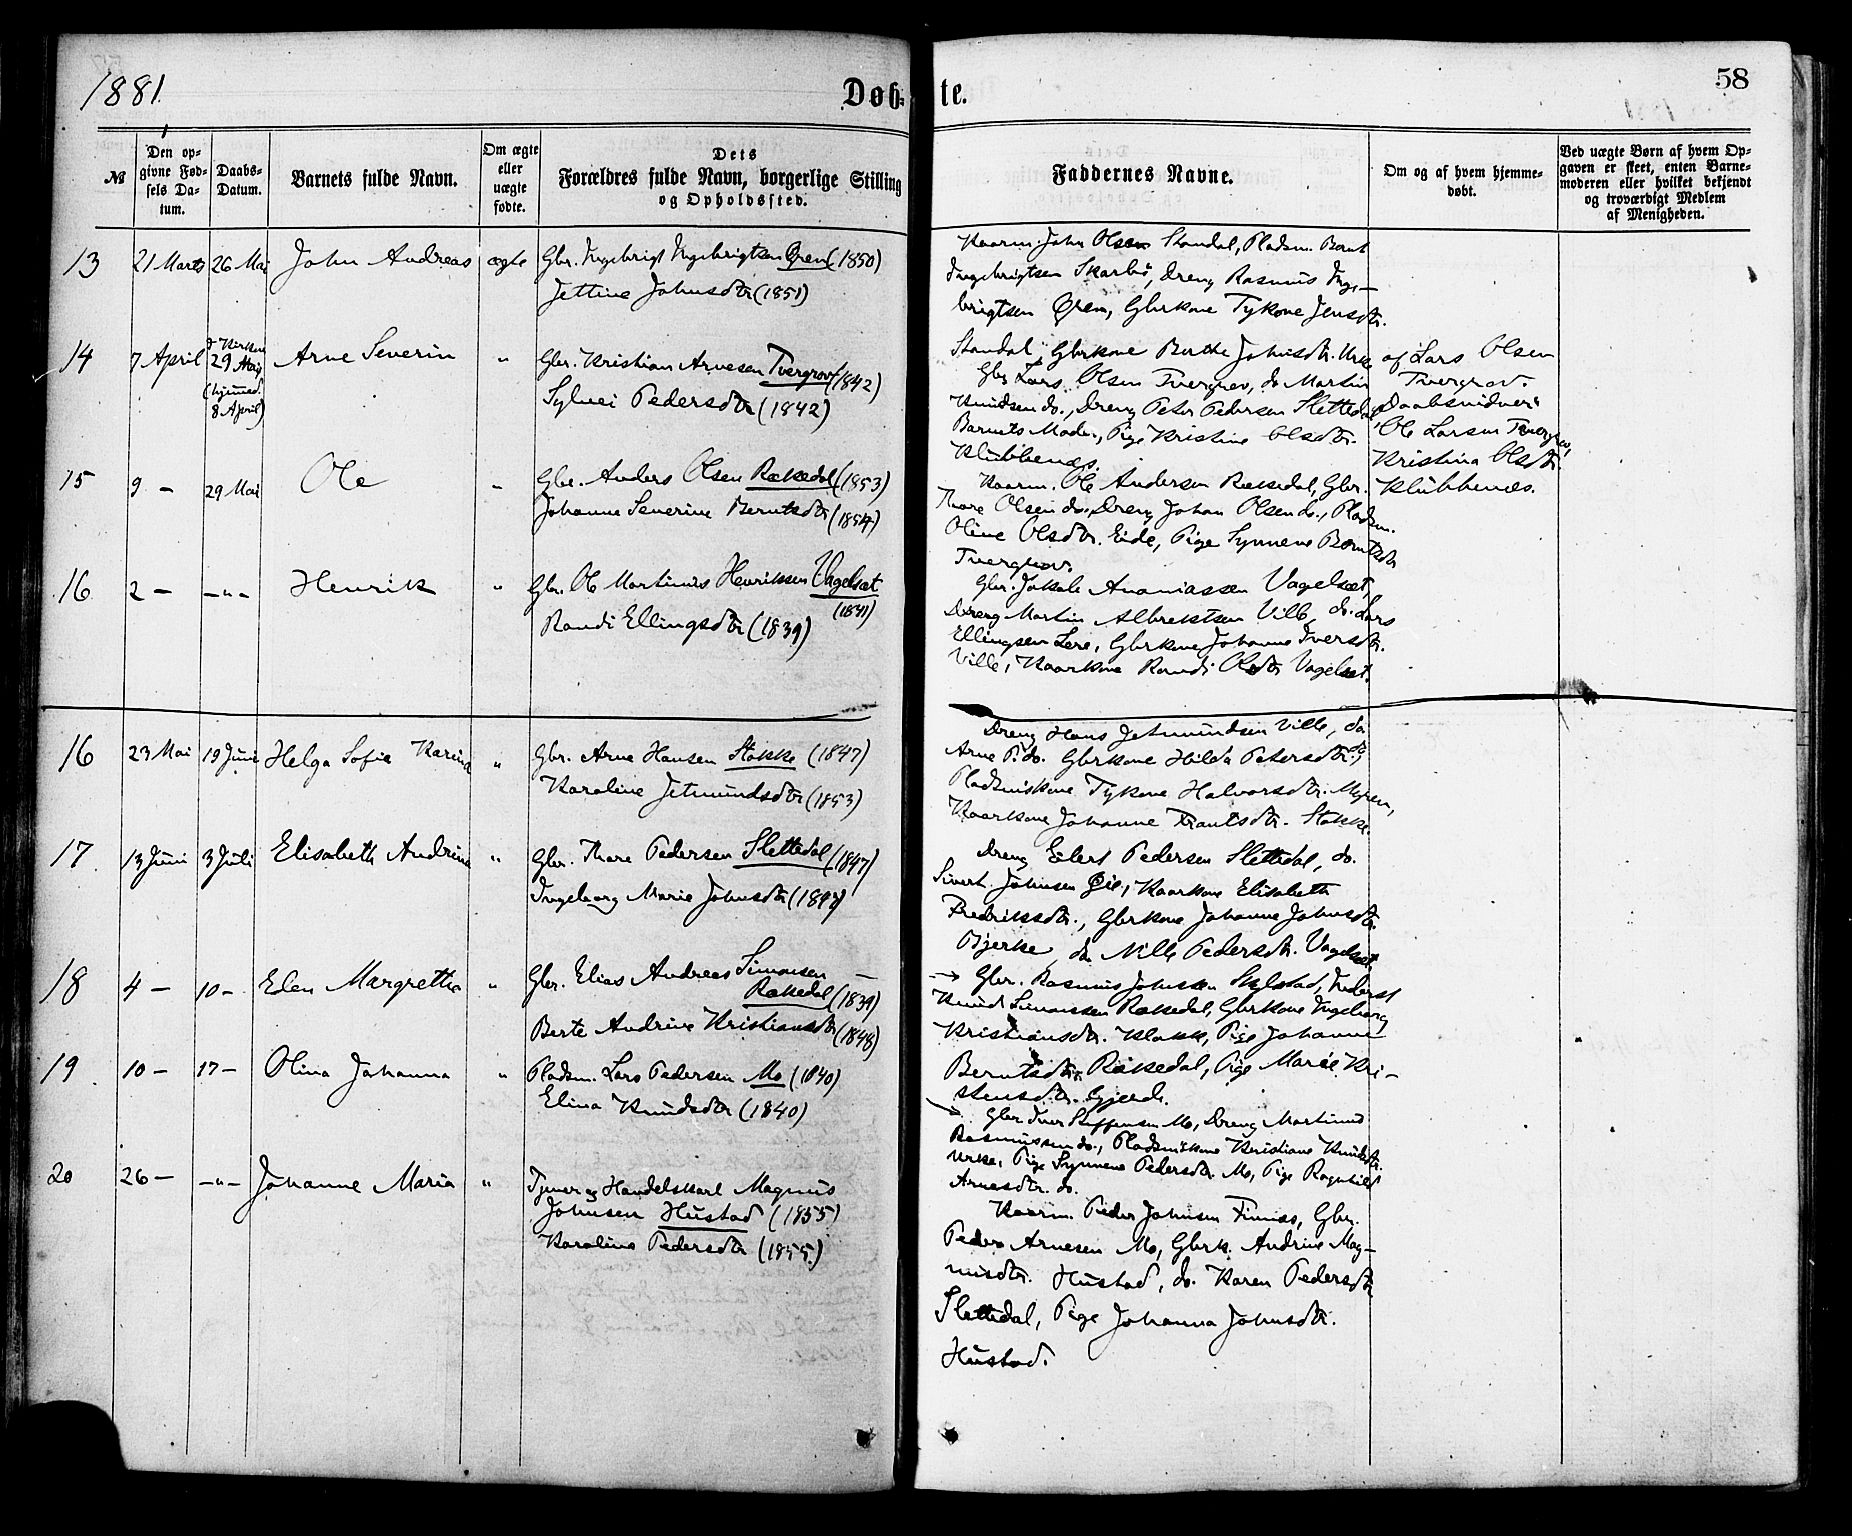 1881.
Døb-
te.
58
№
Den opgivne Fødsels Datum.
Daabs-Datum.
Barnets fulde Navn.
Om ægte eller uægte fødte.
Dets Forældres fulde Navn, borgerlige Stilling og Opholdssted.
Faddernes Navne.
Om og af hvem hjemmedøbt.
Ved uægte Børn af hvem Opgaven er skeet, enten Barnemoderen eller hvilket bekjendt og troværdigt Medlem af Menigheden.
13 21 Marts 26 Mai John Andreas ægte Gbr. Ingebrigt Ingebrigtsen Øren (1850)
Jettine Johnsdtr (1851)
Kaarm. John Olsen Standal, Pladsm. Bernt
Ingebrigtsen Skarbø, Dreng Rasmus Inge-
brigtsen Øren, Gbrkone Tykone Jensdtr.
Standal, Gbrkone Berthe Johnsdtr. Urke
14 7 April i Kirken 29 Maj (hjemmed. 8 April) Arne Severin " Gbr. Kristian Arnesen Tvergrov (1842)
Sylvei Pedersdtr (1842)
Gbr Lars Olsen Tvergrov, do Martin
Knudsen do., Dreng Peter Pedersen Slettedal,
Barnets Moder, Pige Kristine Olsdtr.
Klubbenes.
af Lars Olsen
Tvergrov.
Daabsvidner:
Ole Larsen Tvergrov,
Kristina Olsdtr.
Klubbenes.
15 9 - 29 Mai Ole " Gbr. Anders Olsen Rækedal (1853)
Johanne Severine Berntsdtr (1854)
Kaarm. Ole Andersen Rækedal, Gbr.
Thore Olsen do., Dreng Johan Olsen do., Pladsm.
Oline Olsdtr. Eide, Pige Synneve Berntsdtr
Tvergrov.
16 2 - -"- Henrik " Gbr. Ole Martinus Henriksen Vagelsæt
(1841)
Randi Ellingsdtr (1839)
Gbr. Jakob Ananiassen Vagelsæt,
Dreng Martin Albrektsen Ville, do. Lars
Ellingsen Lere, Gbrkone Johanne Iversdtr.
Ville, Kaarkone Randi Olsdtr Vagelsæt.
16 23 Mai 19 Juni Helga Sofie Karina " Gbr. Arne Hansen Stokke (1847)
Karoline Jetmundsdtr (1853)
Dreng Hans Jetmundsen Ville, do
Arne P. do. Gbrkone Hilda Petersdtr. do,
Pladsmiskone Tykone Halvorsdtr. Myren,
Kaarkone Johanne Frantsdtr. Stokke.
17. 13 Juni 3 Juli Elisabeth Andrina " Gbr. Thore Pedersen Slettedal (1847)
Ingeborg Marie Johnsdtr (1847)
Dreng Eilert Pedersen Slettedal, do.
Sivert Johnsen Øie, Kaarkone Elisabeth
Fredriksdtr., Gbrkone Johanne Johnsdtr.
Bjerke, do Nille Pedersdtr. Vagelsæt
18 4 - 10 - Elen Margrethe " Gbr. Elias Andreas Simonsen
Rækedal (1839)
Berte Andrine Kristiansdtr (1848)
Gbr. Rasmus Johnsen Skylstad, Inderst
Knud Simonsen Rækedal, Gbrkone Ingeborg
Kristiansdtr. Klokk, Pige Johanne
Berntsdtr. Rækedal, Pige Marie Kri-
stensdtr. Gjerde.
19 10 - 17 - Olina Johanna " Pladsm. Lars Pedersen Mo (1840)
Elina Knudsdtr (1840)
Gbr Iver Steffensen Mo, Dreng Martinus
Rasmussen do., Pladsmiskone Kristiane Knudsdtr.
Urke, Pige Synneve Pedersdtr. Mo, Pige Ragnhild
Arnesdtr. do.
20 26 - -"- Johanne Maria " Tjener og Handelskarl Magnus
Johnsen Hustad (1855)
Karoline Pedersdtr (1855)
Kaarm. Peder Johnsen Finnes, Gbr.
Peder Arnesen Mo, Gbrk. Andrine Mag-
nusdtr. Hustad, do. Karen Pedersdtr
Slettedal, Pige Johanna Johnsdtr.
Hustad.